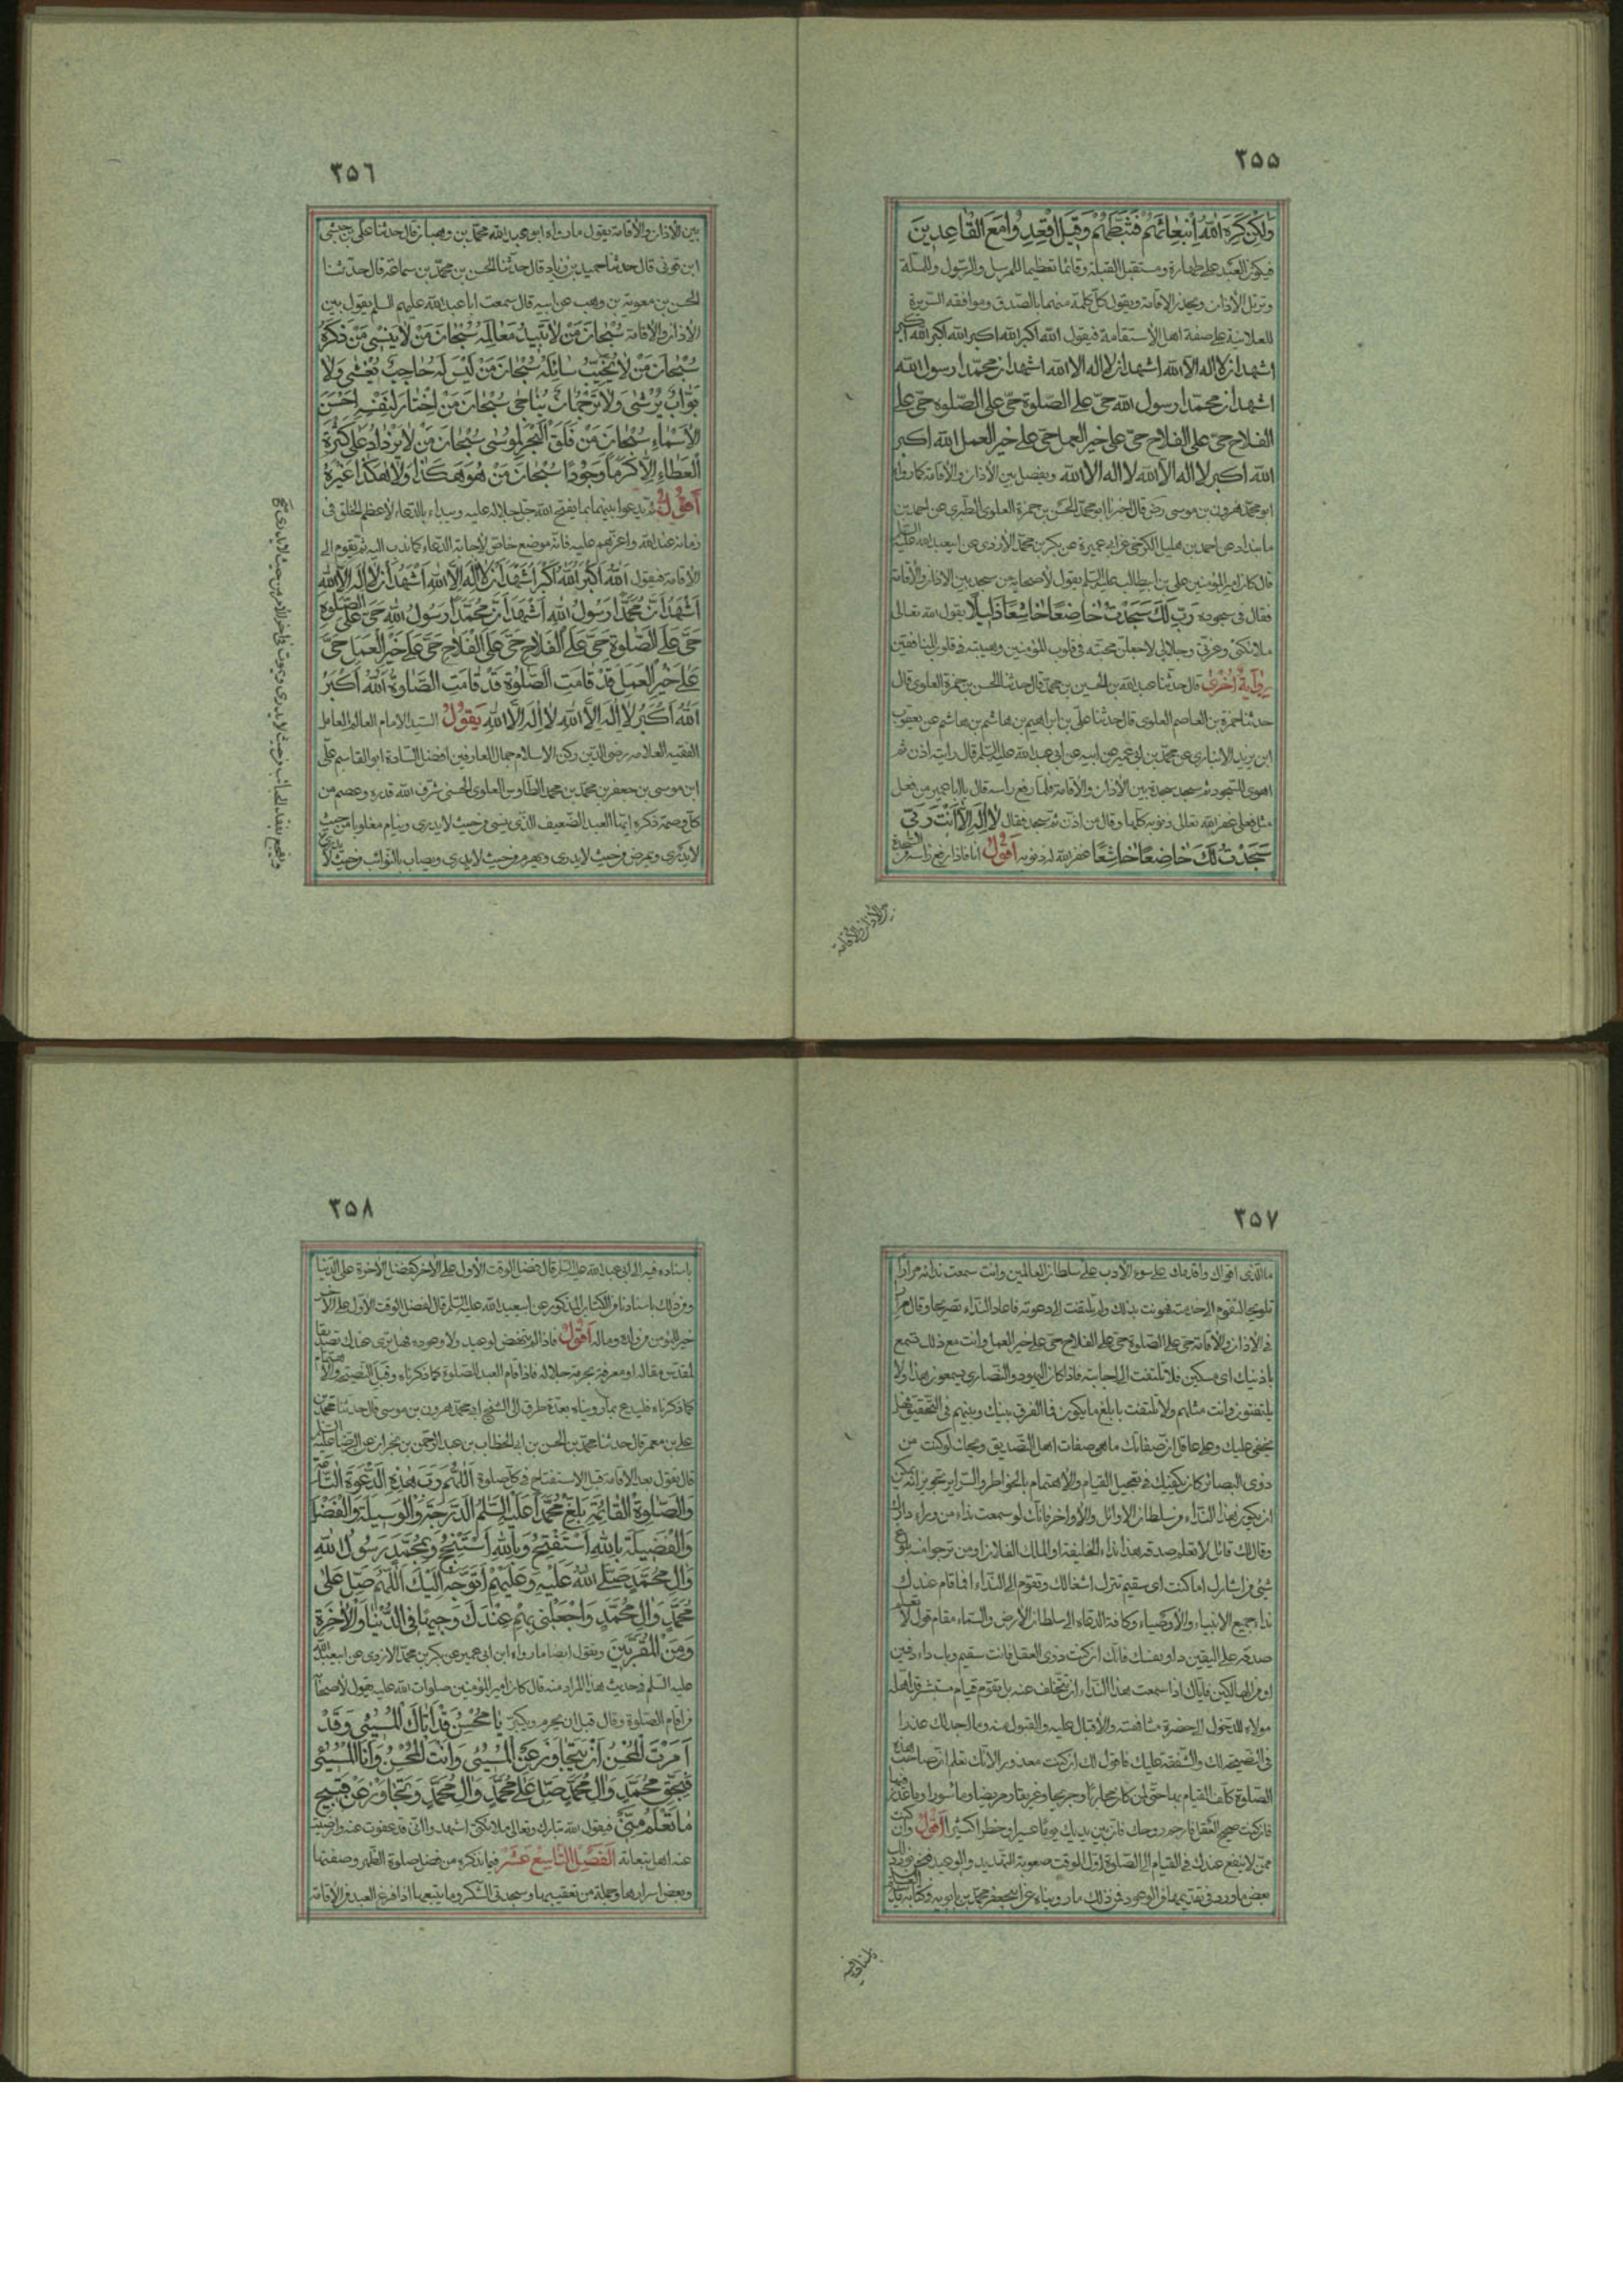 ٢٥٥
ولكن كره الله انبعاثهم فثبطهم وقيل اقعدوا مع القاعدين
فيكون العبد على طهارة ومستقبل القبلة وقائما تعظيما للمرسل والرسول والرسالة
ويرتل الاذان ويحدر الاقامة ويقول كل كلمة منهما بالصدق وموافقة السريرة
للعلانية على صفة اهل الاستقامة فيقول الله اكبر الله اكبر الله اكبر الله اكبر
اشهد ان لا اله الا الله اشهد ان لا اله الا الله اشهد ان محمدا رسول الله
اشهد ان محمدا رسول الله حي على الصلوة حي على الصلوة حي على
الفلاح حي على الفلاح حي على خير العمل حي على خير العمل الله اكبر
الله اكبر لا اله الا الله لا اله الا الله ويفصل بين الاذان والاقامة كما رواه
ابو محمد هرون بن موسى رض قال اخبرنا ابو محمد الحسن بن حمزة العلوي الطبري عن احمد بن
مابنداد عن احمد بن هليل الكرخي عن ابن ابي عميرة عن بكر بن محمد الازدي عن ابيعبد الله عليه السلام
قال كان امير المؤمنين علي بن ابيطالب عليه السلم يقول لاصحابه من سجد بين الاذان والاقامة
فقال في سجوده رب لك سجدت خاضعا خاشعا ذليلا يقول الله تعالى
ملائكتي وعزتي وجلالي لاجعلن محبته في قلوب المؤمنين وهيبته في قلوب المنافقين
رواية اخرى قال حدثنا عبد الله بن الحسين بن محمد قال حدثنا الحسن بن حمزة العلوي قال
حدثنا حمزة بن القاسم العلوي قال حدثنا علي بن ابراهيم بن هاشم بن هاشم عن يعقوب
ابن يزيد الانباري عن محمد بن ابي عمير عن ابيه عن ابي عبد الله عليه السلم قال رايته اذن ثم
اهوى للسجود ثم سجد سجدة بين الاذان والاقامة فلما رفع راسه قال يا ابا عمير من فعل
مثل فعلي غفر الله تعالى ذنوبه كلها وقال من اذن ثم سجد فقال لا اله الا انت ربي
سجدت لك خاضعا خاشعا غفر الله له ذنوبه اقول انا فاذا رفع راسه من السجدة
بين الاذان والاقامة
٢٥٦
بين الاذان والاقامة يقول ما رواه ابو عبد الله محمد بن وهبان قال حدثنا علي بن حبشي
ابن قوني قال حدثنا حميد بن زياد قال حدثنا الحسن بن محمد بن سماعة قال حدثنا
الحسن بن معوية بن وهب عن ابيه قال سمعت ابا عبد الله عليهم السلم يقول بين
الاذان والاقامة سبحان من لا تبيد معالمه سبحان من لا ينسى من ذكره
سبحان من لا يخيب سائله سبحان من ليس له حاجب يغشى ولا
بواب يرشى ولا ترجمان يناجى سبحان من اختار لنفسه احسن
الاسماء سبحان من فلق البحر لموسى سبحان من لا يزداد على كثرة
العطاء الا كرما وجودا سبحان من هو هكذا ولا هكذا غيره
اقول ثم يدعوا بينهما بما يفتح الله جل جلاله عليه ويبداء بالدعاء لاعظم الخلق في
زمانه عند الله واعزهم عليه فانه موضع خاص لاجابة الدعاء كما ندب اليه ثم يقوم الى
الاقامة فيقول الله اكبر الله اكبر اشهد ان لا اله الا الله اشهد ان لا اله الا الله
اشهد ان محمدا رسول الله اشهد ان محمدا رسول الله حي على الصلوة
حي على الصلوة حي على الفلاح حي على الفلاح حي على خير العمل حي
على خير العمل قد قامت الصلوة قد قامت الصلوة الله اكبر
الله اكبر لا اله الا الله لا اله الا الله يقول السيد الامام العالم العامل
الفقيه العلامة رضي الدين ركن الاسلام جمال العارفين افضل السادة ابو القاسم علي
ابن موسى بن جعفر بن محمد بن محمد الطاوس العلوي الحسني شرف الله قدره وعصم من
كل وصمة ذكره ايها العبد الضعيف الذي ينسى من حيث لا يدري وينام مغلوبا من حيث
لا يدري ويمرض من حيث لا يدري ويهرم من حيث لا يدري ويصاب بالنوائب من حيث لا يدري
ويفجع بفقد الحبائب من حيث لا يدري ويموت في اخر الامر من حيث لا يدري
٢٥٧
ما الذي اقواك واقدمك على سوء الادب على سلطان العالمين وانت سمعت نداءه مرارا
تلويحا لتقوم الى خدمته فهونت بذلك ولم يلتفت الى دعوته فاعاد النداء تصريحا وقال مرارا
في الاذان والاقامة حي على الصلوة حي على الفلاح حي على خير العمل وانت مع ذلك تسمع
باذنيك اي مسكين فلا تلتفت الى اجابته فاذا كان اليهود والنصارى يسمعون هذا ولا
يلتفتون وانت مثلهم ولا تلتفت بابلغ ما يكون فما الفرق بينك وبينهم في التحقيق فهل
يخفى عليك وعلى عاقل ان صفاتك ما هي صفات اهل التصديق ويحك لو كنت من
ذوي البصائر كان يكفيك في تعجيل القيام والاهتمام بالخواطر والسراير تجويز انه يمكن
ان يكون هذا النداء من سلطان الاوائل والاواخر فانك لو سمعت نداء من وراء دارك
وقال لك قائل لا تعلم صدقه هذا نداء الخليفة او الملك الفلان او من ترجوا منه بلوغ
شئ من اشارك اما كنت اي سقيم تترك اشغالك وتقوم الى النداء افما قام عندك
نداء جميع الانبياء والاوصياء وكافة الدعاة الى سلطان الارض والسماء مقام قول لا تعلم
صدقه على اليقين داو نفسك فانك ان كنت ذوي العقل فانت سقيم وباب داء دفين
او من الهالكين فاياك اذا سمعت هذا النداء ان تتخلف عنه بل يقوم قيام مستبشر قد اهله
مولاه للدخول الى حضرة مشافهته والاقبال عليه والقبول منه وما اجد لك عذرا
في النصيحة لك والشفقة عليك فاقول لك ان كنت معذورا لانك تعلم ان صاحب هذه
الصلوة كلف القيام بها حتى لمن كان محاربا وجريحا وغريقا ومريضا وماسورا وما عذر فيها
فان كنت صحيح العقل فارحم روحك فان بين يديك يوما عسيرا وخطرا كثيرا اقول وان كنت
ممن لا ينفع عندك في القيام الى الصلوة اول الوقت صعوبة التهديد والوعيد
بعض ما ورد في تقديمها من الوعود فمن ذلك ما رويناه عن ابيجعفر محمد بن بابويه من كتاب
باسناده فيه
٢٥٨
باسناده فيه الى ابي عبد الله عليه السلم قال فضل الوقت الاول على الاخر كفضل الاخرة على الدنيا
ومن ذلك باسنادنا من الكتاب المذكور عن ابيعبد الله عليه السلم قال لفضل الوقت الاول على الاخر
خير للمؤمن من ولده وماله اقول فاذا لم تنهض لوعيد ولا وعوده فهل ترى عندك تصديقا
لمقدس مقاله او معرفة بحرمة جلاله فاذا قام العبد للصلوة كما ذكرناه وقبل النصيحة والا
كما ذكرناه فليدع بما رويناه بعدة طرق الى الشيخ ابو محمد هرون بن موسى قال حدثنا محمد بن
علي بن معمر قال حدثنا محمد بن الحسن بن ابي الخطاب بن عبد الرحمن بن نجران عن الرضا عليه السلام
قال تقول بعد الاقامة قبل الاستفتاح في كل صلوة اللهم رب هذه الدعوة التامة
والصلوة القائمة بلغ محمدا عليه السلم الدرجة والوسيلة والفضل
والفضيلة بالله استفتح وبالله استنجح وبمحمد رسول الله
وال محمد صلى الله عليه وعليهم اتوجه اليك اللهم صل على
محمد وال محمد واجعلني بهم عندك وجيها في الدنيا والاخرة
ومن المقربين ويقول ايضا ما رواه ابن ابي عمير عن بكر بن محمد الازدي عن ابيعبد الله
عليه السلم في حديث هذا المراد منه قال كان امير المؤمنين صلوات الله عليه يقول لاصحابه
من اقام الصلوة وقال قبل ان يحرم ويكبر يا محسن قد اتاك المسيئ وقد
امرت المحسن ان يتجاوز عن المسيئ وانت المحسن وانا المسيئ
فبحق محمد وال محمد صل على محمد وال محمد وتجاوز عن قبيح
ما تعلم مني فيقول الله تبارك وتعالى ملائكتي اشهدوا اني قد عفوت عنه وارضيت
عنه اهل تبعاته الفصل التاسع عشر فيما نذكره من فضل صلوة الظهر وصفتها
وبعض اسرارها وجملة من تعقيبها وسجدتي الشكر وما يتبعها اذا فرغ العبد من الاقامة